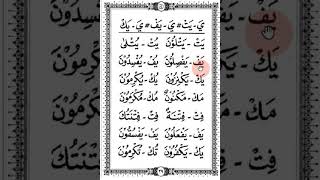 يَ - يَتْ # يَ - يَفْ # يَ - يَكْ
يَتْ - يَتْلُوْنَ يُتْ - يُتْلٰى
يَفْ - يَفْصِلُوْنَ يُفْ - يُفْسِدُوْنَ
يَكْ - يَكْنِزُوْنَ يُكْ - يُكْرِمُوْنَ
مَكْ - مَكْنُوْنٌ مُكْ - مُكْرَمُوْنَ
فِتْ - فِتْنَةٌ فِتْ - فِتْنَتُكَ
يَفْ - يَفْعَلُوْنَ يَفْ - يَفْسُقُوْنَ
يَكْ - يَكْفُرُوْنَ تُكْ - تُكْرِمُوْنَ